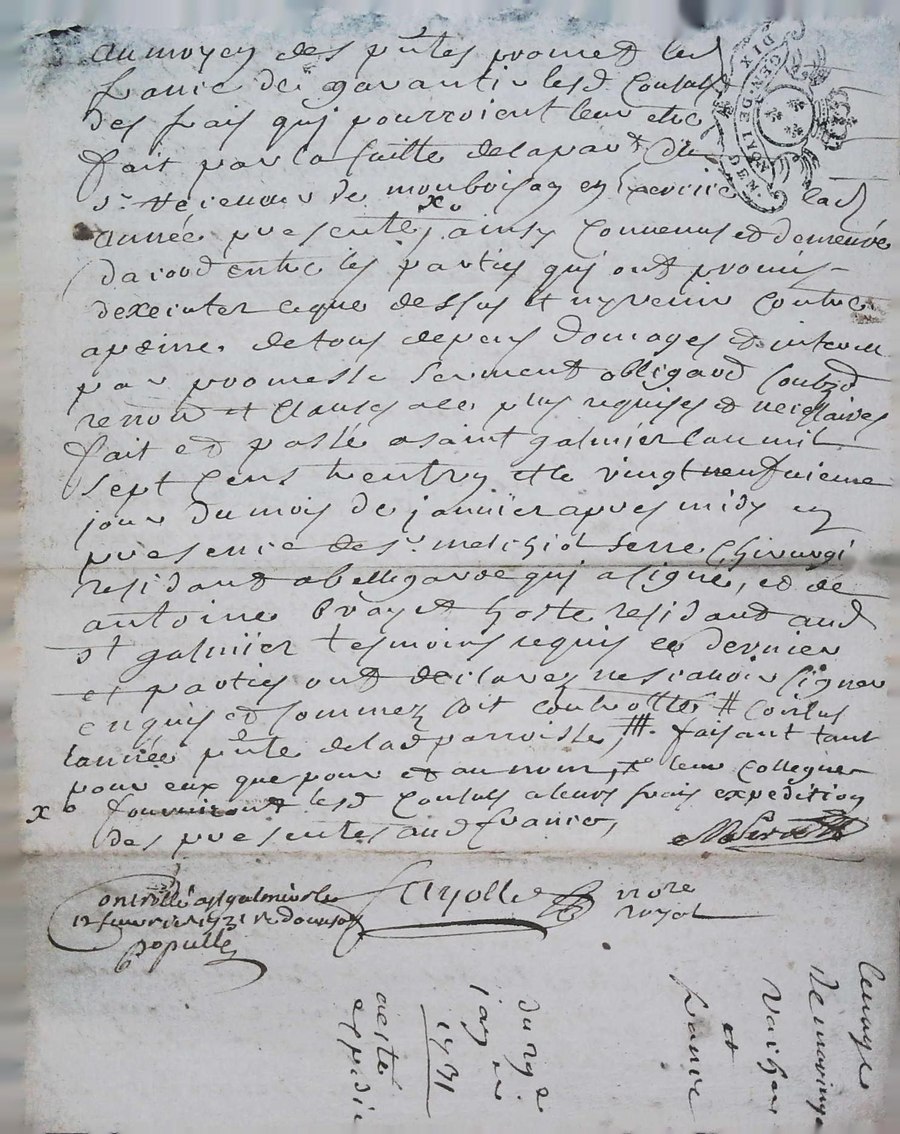 au moyen des pntes promet led
france de garantir lesd Consuls
des frais quj pourroient leur etre
fait par la faitte delapart du
sr de monboison en exercice lad
année presente, ainsy Convenus et demeuré
dacord entre les parties quj ont promis
dexecuter ceque dessus et ny venir Contre
apeine, detous depens domages et interest
par promesse serment obligaōn soubzō
renōn et Clauses ace plus requises et necessaires
fait et passé asaint galmier lan mil
sept Cens trentun et le vingt neufvieme
jour dumois de janvier apres midy en
presence de sr. melchiol serre Chirurgi
residant abellegarde quj asigné, et de
antoine brayet hoste residant aud
st galmier tesmoins requis ce dernier
et parties ont declarez nescavoir signer
enquis et sommez soit controllé # Consuls
lannée pnte delad parroisse, #. faisant tant
pour eux que pour et au nom, de leur collegues
x o fourniront lesd Consuls aleurs frais expedition
des presentes aud france,
fayolle nore
royal
Controllé a st galmier le
12 fevrier 1731 R douze s
populle
du 29e
janer
1731
france
et